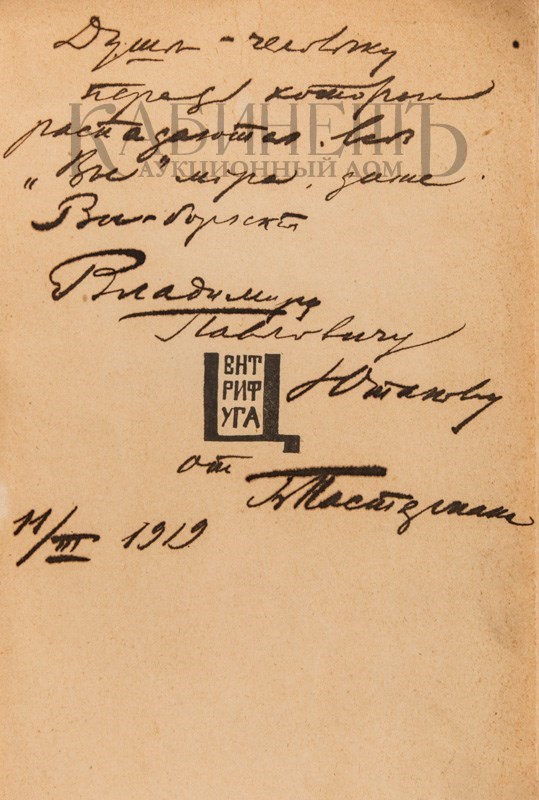 Душа - человеку
перед которым
распадаются все
"Вы" мира, даже
Вы-боржск
Владимиру
Павловичу
Ютанову
ЦЕНТ
РИФ
УГА
от
Б Пастернак
11/III 1919
КАБИНЕТЪ
АУКЦИОННЫЙ ДОМ